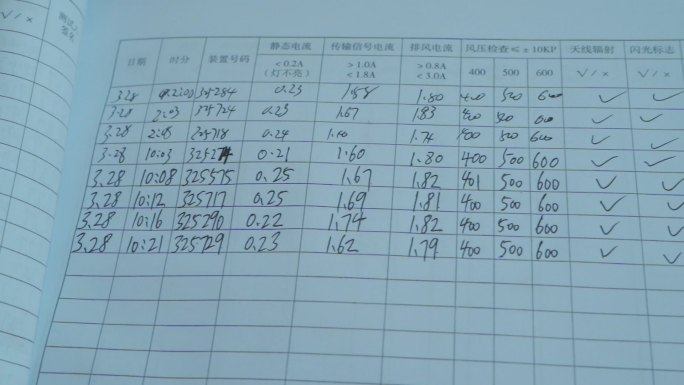 √ / × 测试人签名
日期 时分 装置号码 静态电流 传输信号电流 排风电流 风压检查≤±10KP 天线辐射 闪光标志
<0.2A (灯不亮) >1.0A <1.8A >0.8A <3.0A 400 500 600 √ / × √ / ×
3.28 325284 0.23 1.58 1.80 400 500 600 ✓ ✓
3.28 325724 0.23 1.67 1.83 400 500 600 ✓ ✓
3.28 325718 0.24 1.74 400 500 600 ✓ ✓
3.28 10:03 0.21 1.60 1.80 400 500 600 ✓ ✓
3.28 10:08 325575 0.25 1.67 1.82 401 500 600 ✓ ✓
3.28 10:12 325717 0.25 1.69 1.81 400 500 600 ✓ ✓
3.28 10:16 325290 0.22 1.74 1.82 400 500 600 ✓ ✓
3.28 10:21 325729 0.23 1.62 1.79 400 500 600 ✓ ✓